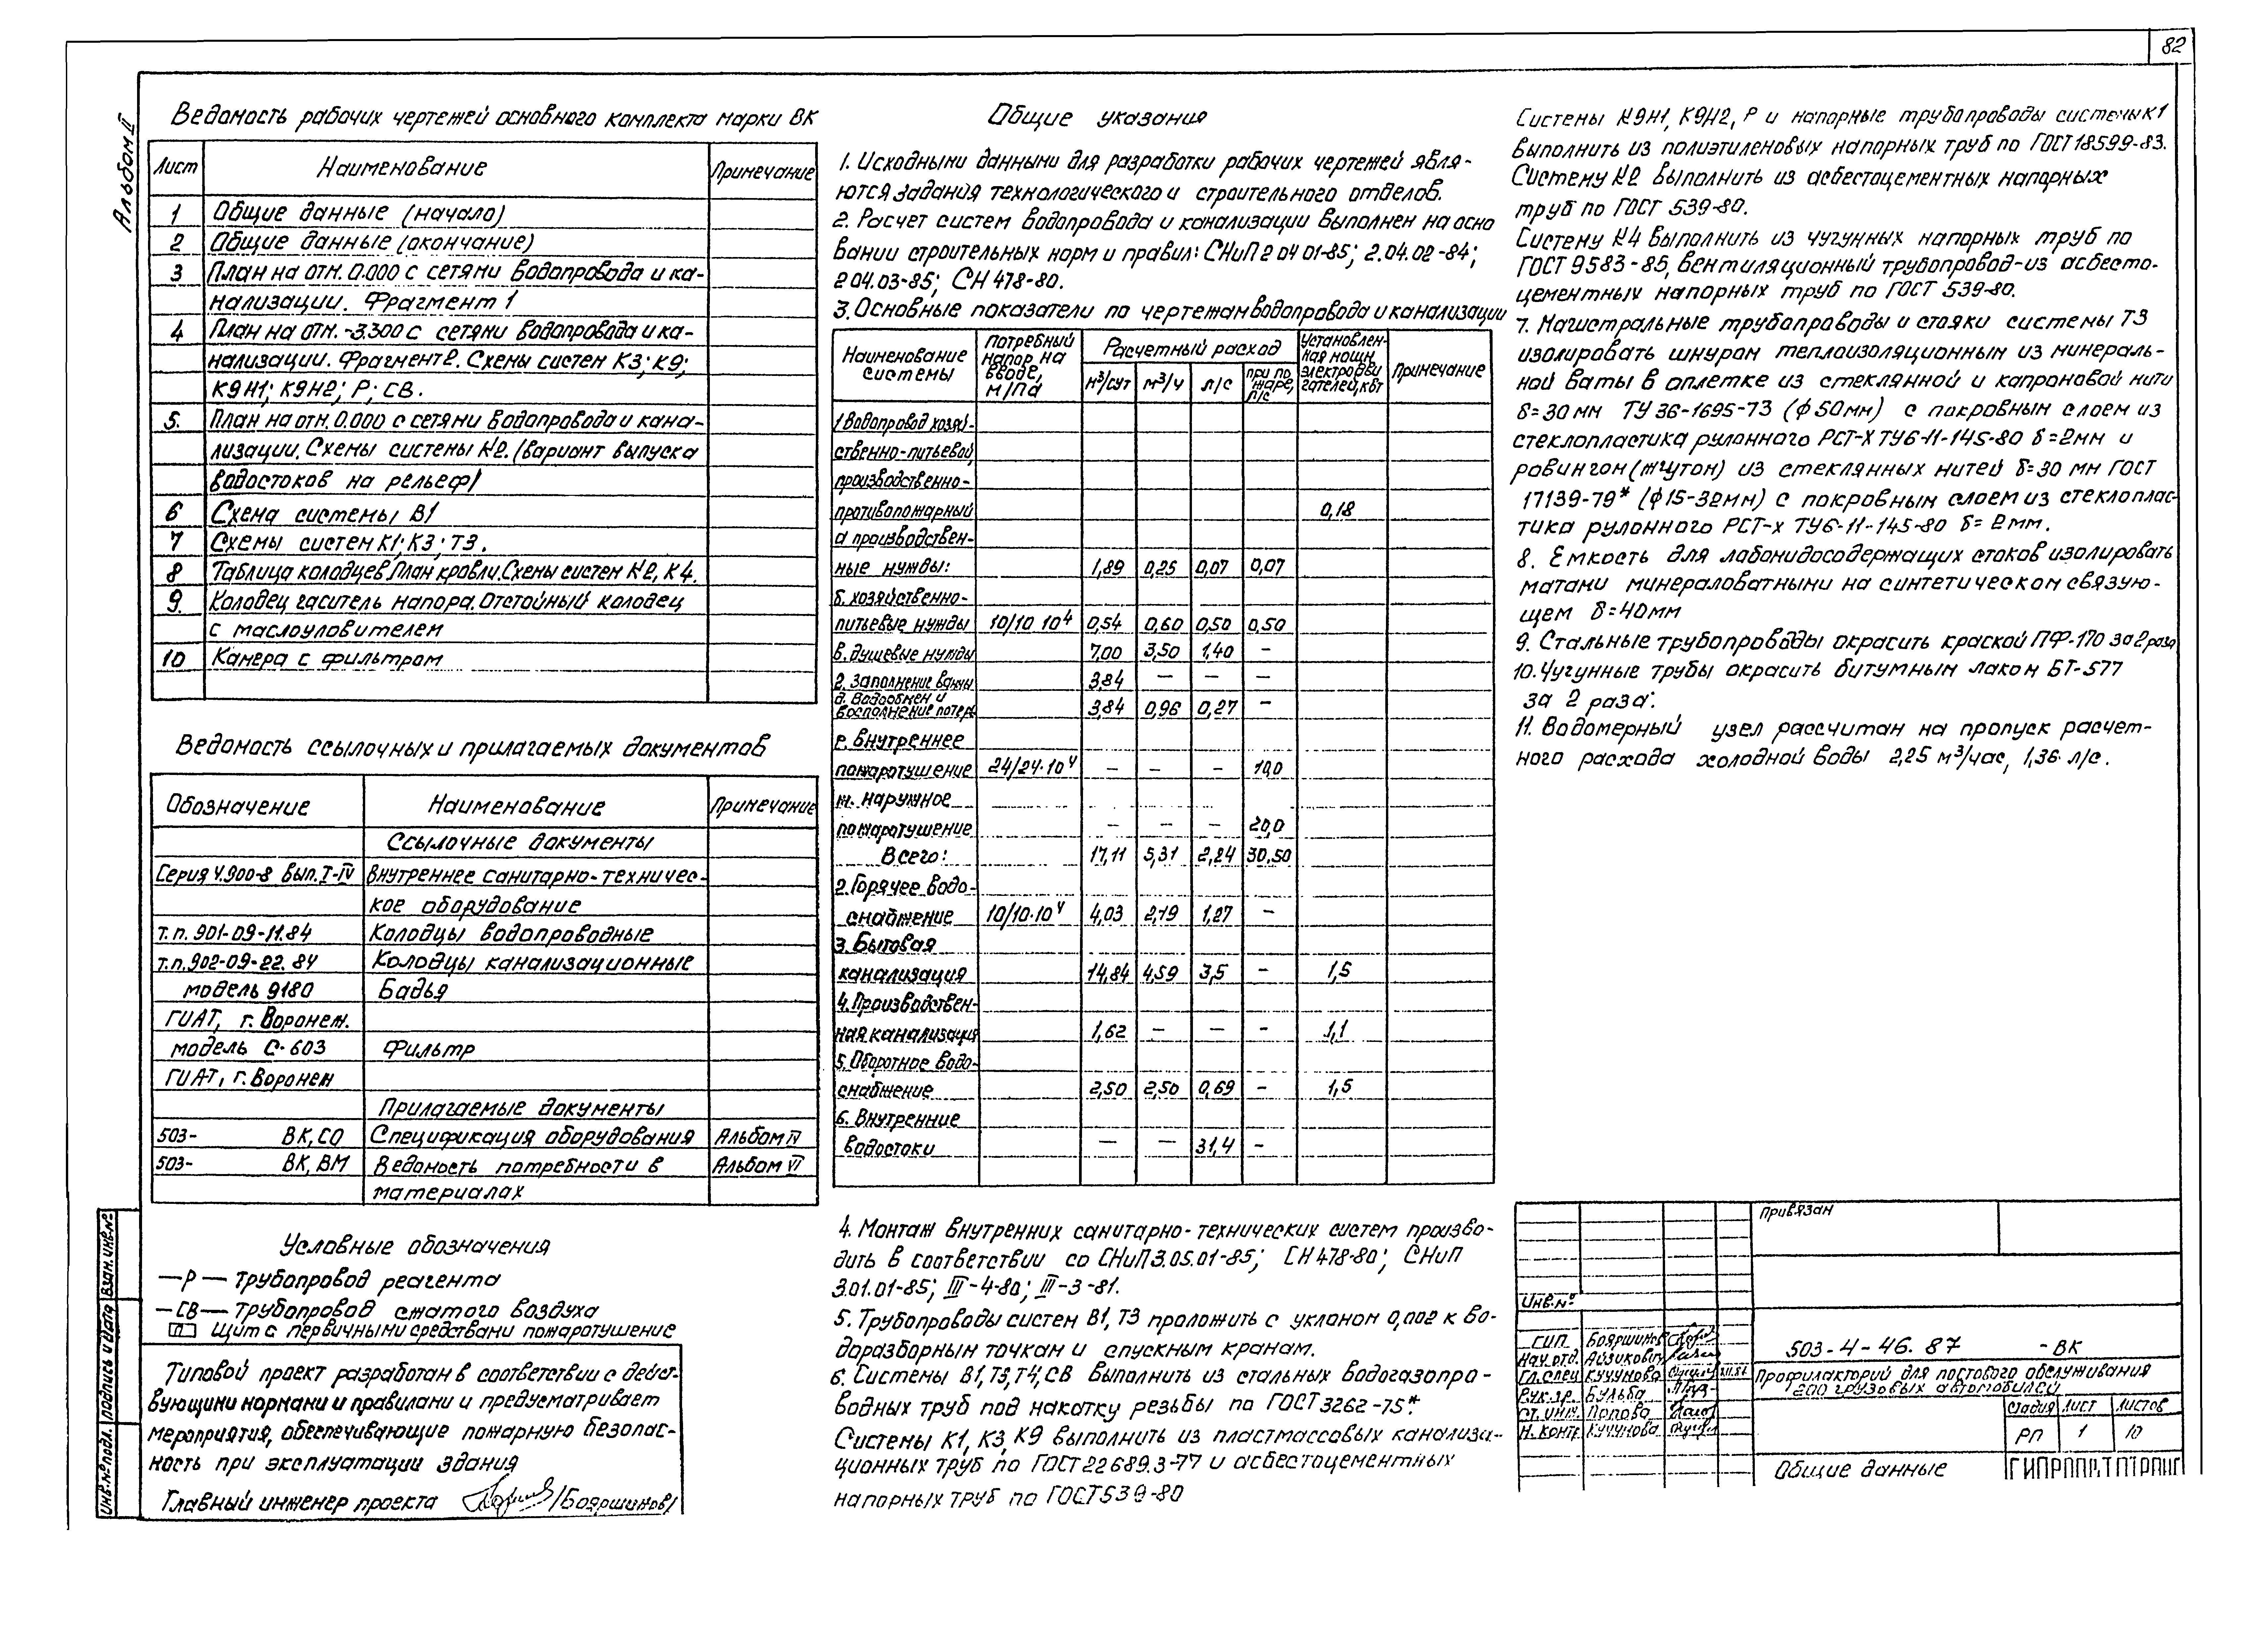 82
Альбом II
Ведомость рабочих чертежей основного комплекта марки ВК
Лист Наименование Примечание
1 Общие данные (начало)
2 Общие данные (окончание)
3 План на отм. 0.000 с сетями водопровода и ка-
нализации. Фрагмент 1
4 План на отм. -3.300 с сетями водопровода и ка-
нализации. Фрагмент 2. Схемы систем К3; К9;
К9Н1; К9Н2; Р; СВ.
5. План на отм. 0.000 с сетями водопровода и кана-
лизации. Схемы системы К2. (вариант выпуска
водостоков на рельеф)
6 Схема системы В1
7 Схемы систем К1; К3; Т3.
8 Таблица колодцев. План кровли. Схемы систем К2, К4.
9. Колодец гаситель напора. Отстойный колодец
с маслоуловителем
10 Камера с фильтром
Ведомость ссылочных и прилагаемых документов
Обозначение Наименование Примечание
Ссылочные документы
Серия 4.900-8 вып. I-IV Внутреннее санитарно-техничес-
кое оборудование
т.п. 901-09-11.84 Колодцы водопроводные
т.п. 902-09-22.84 Колодцы канализационные
модель 9180 Бадья
ГИАТ, г. Воронеж.
модель С-603 Фильтр
ГИАТ, г. Воронеж
Прилагаемые документы
503- ВК, СО Спецификация оборудования Альбом IV
503- ВК, ВМ Ведомость потребности в Альбом VI
материалах
Условные обозначения
—Р— Трубопровод реагента
—СВ— Трубопровод сжатого воздуха
П Щит с первичными средствами пожаротушение
Типовой проект разработан в соответствии с дейст-
вующими нормами и правилами и предусматривает
мероприятия, обеспечивающие пожарную безопас-
ность при эксплуатации здания
Главный инженер проекта /Бояршинов/
Инв.№ подл. Подпись и дата Взам. инв.№
Общие указания
1. Исходными данными для разработки рабочих чертежей явля-
ются задания технологического и строительного отделов.
2. Расчет систем водопровода и канализации выполнен на осно
вании строительных норм и правил: СНиП 2 04 01-85; 2.04.02-84;
2 04.03-85; СН 478-80.
3. Основные показатели по чертежам водопровода и канализации
Наименование системы Потребный напор на вводе, м/Па Расчетный расход Установлен-ная мощн. электродви гателей, кВт Примечание
м³/сут м³/ч л/с при по жаре, л/с
1 Водопровод хозяй-
ственно-питьевой,
производственно-
противопожарный 0,18
а производствен-
ные нужды: 1,89 0,25 0,07 0,07
б. хозяйственно-
питьевые нужды 10/10 10⁴ 0,54 0,60 0,50 0,50
в. душевые нужды 7,00 3,50 1,40 –
г. Заполнение ванны 3,84 – – –
д. Водообмен и
восполнение потерь 3,84 0,96 0,27 –
е. внутреннее
пожаротушение 24/24·10⁴ – – – 10,0
ж. наружное
пожаротушение – – – 20,0
Всего: 17,11 5,31 2,24 30,50
2. Горячее водо-
снабжение 10/10·10⁴ 4,03 2,19 1,27 –
3. Бытовая
канализация 14,84 4,59 3,5 – 1,5
4. Производствен-
ная канализация 1,62 – – – 1,1
5. Оборотное водо-
снабжение 2,50 2,50 0,69 – 1,5
6. Внутренние
водостоки – – 31,4 –
4. Монтаж внутренних санитарно-технических систем произво-
дить в соответствии со СНиП 3.05.01-85; СН 478-80; СНиП
3.01.01-85; III-4-80; III-3-81.
5. Трубопроводы систем В1, Т3 проложить с уклоном 0,002 к во-
доразборным точкам и спускным кранам.
6. Системы В1, Т3, Т4, СВ выполнить из стальных водогазопро-
водных труб под накатку резьбы по ГОСТ 3262-75*.
Системы К1, К3, К9 выполнить из пластмассовых канализа-
ционных труб по ГОСТ 22689.3-77 и асбестоцементных
напорных труб по ГОСТ 539-80
Системы К9Н1, К9Н2, Р и напорные трубопроводы системы К1
выполнить из полиэтиленовых напорных труб по ГОСТ 18599-83.
Систему К2 выполнить из асбестоцементных напорных
труб по ГОСТ 539-80.
Систему К4 выполнить из чугунных напорных труб по
ГОСТ 9583-85, вентиляционный трубопровод-из асбесто-
цементных напорных труб по ГОСТ 539-80.
7. Магистральные трубопроводы и стояки системы Т3
изолировать шнуром теплоизоляционным из минераль-
ной ваты в оплетке из стеклянной и капроновой нити
δ=30 мм ТУ 36-1695-73 (ф 50мм) с покровным слоем из
стеклопластика рулонного РСТ-Х ТУ6-11-145-80 δ=2мм и
ровингом (жгутом) из стеклянных нитей δ=30 мм ГОСТ
17139-79* (ф 15-32мм) с покровным слоем из стеклоплас-
тика рулонного РСТ-Х ТУ6-11-145-80 δ=2мм.
8. Емкость для лабонидосодержащих стоков изолировать
матами минераловатными на синтетическом связую-
щем δ=40мм
9. Стальные трубопроводы окрасить краской ПФ-170 за 2 раза
10. Чугунные трубы окрасить битумным лаком БТ-577
за 2 раза.
11. Водомерный узел рассчитан на пропуск расчет-
ного расхода холодной воды 2,25 м³/час, 1,36 л/с.
Привязан
Инв.№
ГИП Бояршинов
Нач.отд. Айзикович
Гл.спец Кучумова
Рук.гр. Бульба
Ст.инж. Попова
Н.контр. Кучумова
503-4-46.87 -ВК
Профилакторий для постового обслуживания
200 грузовых автомобилей
Стадия Лист Листов
РП 1 10
Общие данные